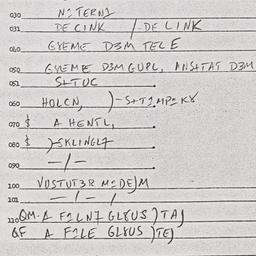 030 N2TERN1
031 DECINK /-DELINK
040 GYEME D3M TELE
050 GYEME D3M GUPL, ANSTTAT D3M
051 S+TUC
060 HOLCN, )-S+T2MP2K8
070 $ A HENTL,
080 $ )-SKLINGL7
090 -/-
100 VOSTUT3R M2DE)M
101 -/-/
110 QM-A F2LN7 GL8US)TAJ
&F A F2LE GL8US)TEJ